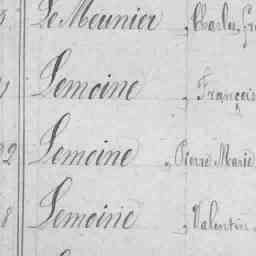 Le Meunier , Charles,
Lemoine , François
2 Lemoine , Pierre Marie
8 Lemoine , Valentin